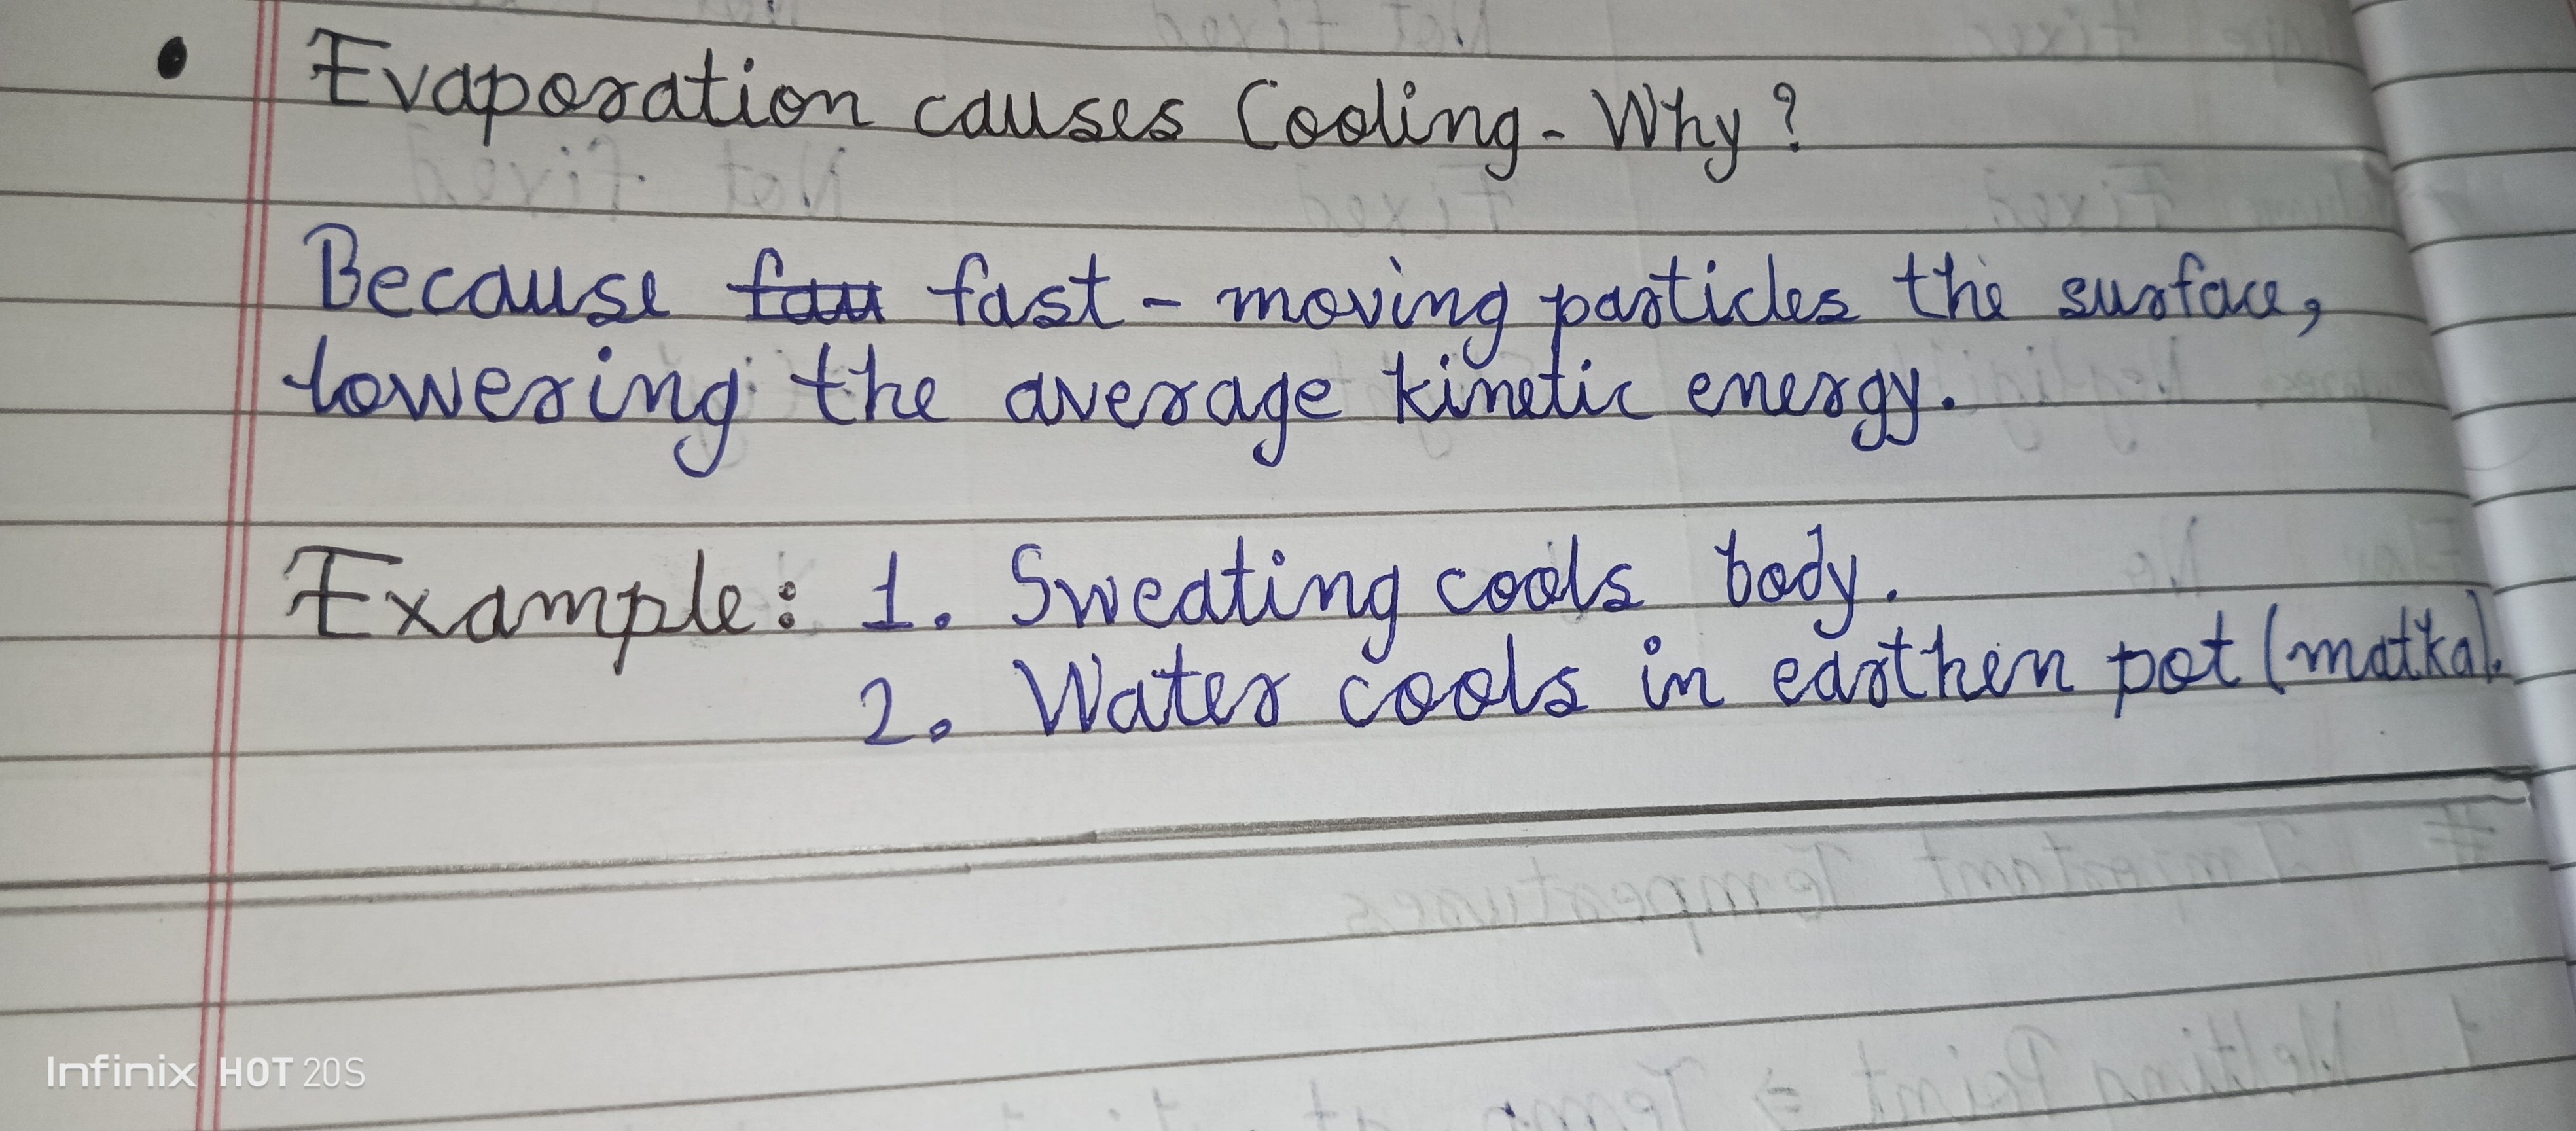 • Evaporation causes Cooling - Why?
Because fau fast - moving particles the surface,
lowering the average kinetic energy.
Example: 1. Sweating cools body.
2. Water cools in earthen pot (matka).
Infinix HOT 20S